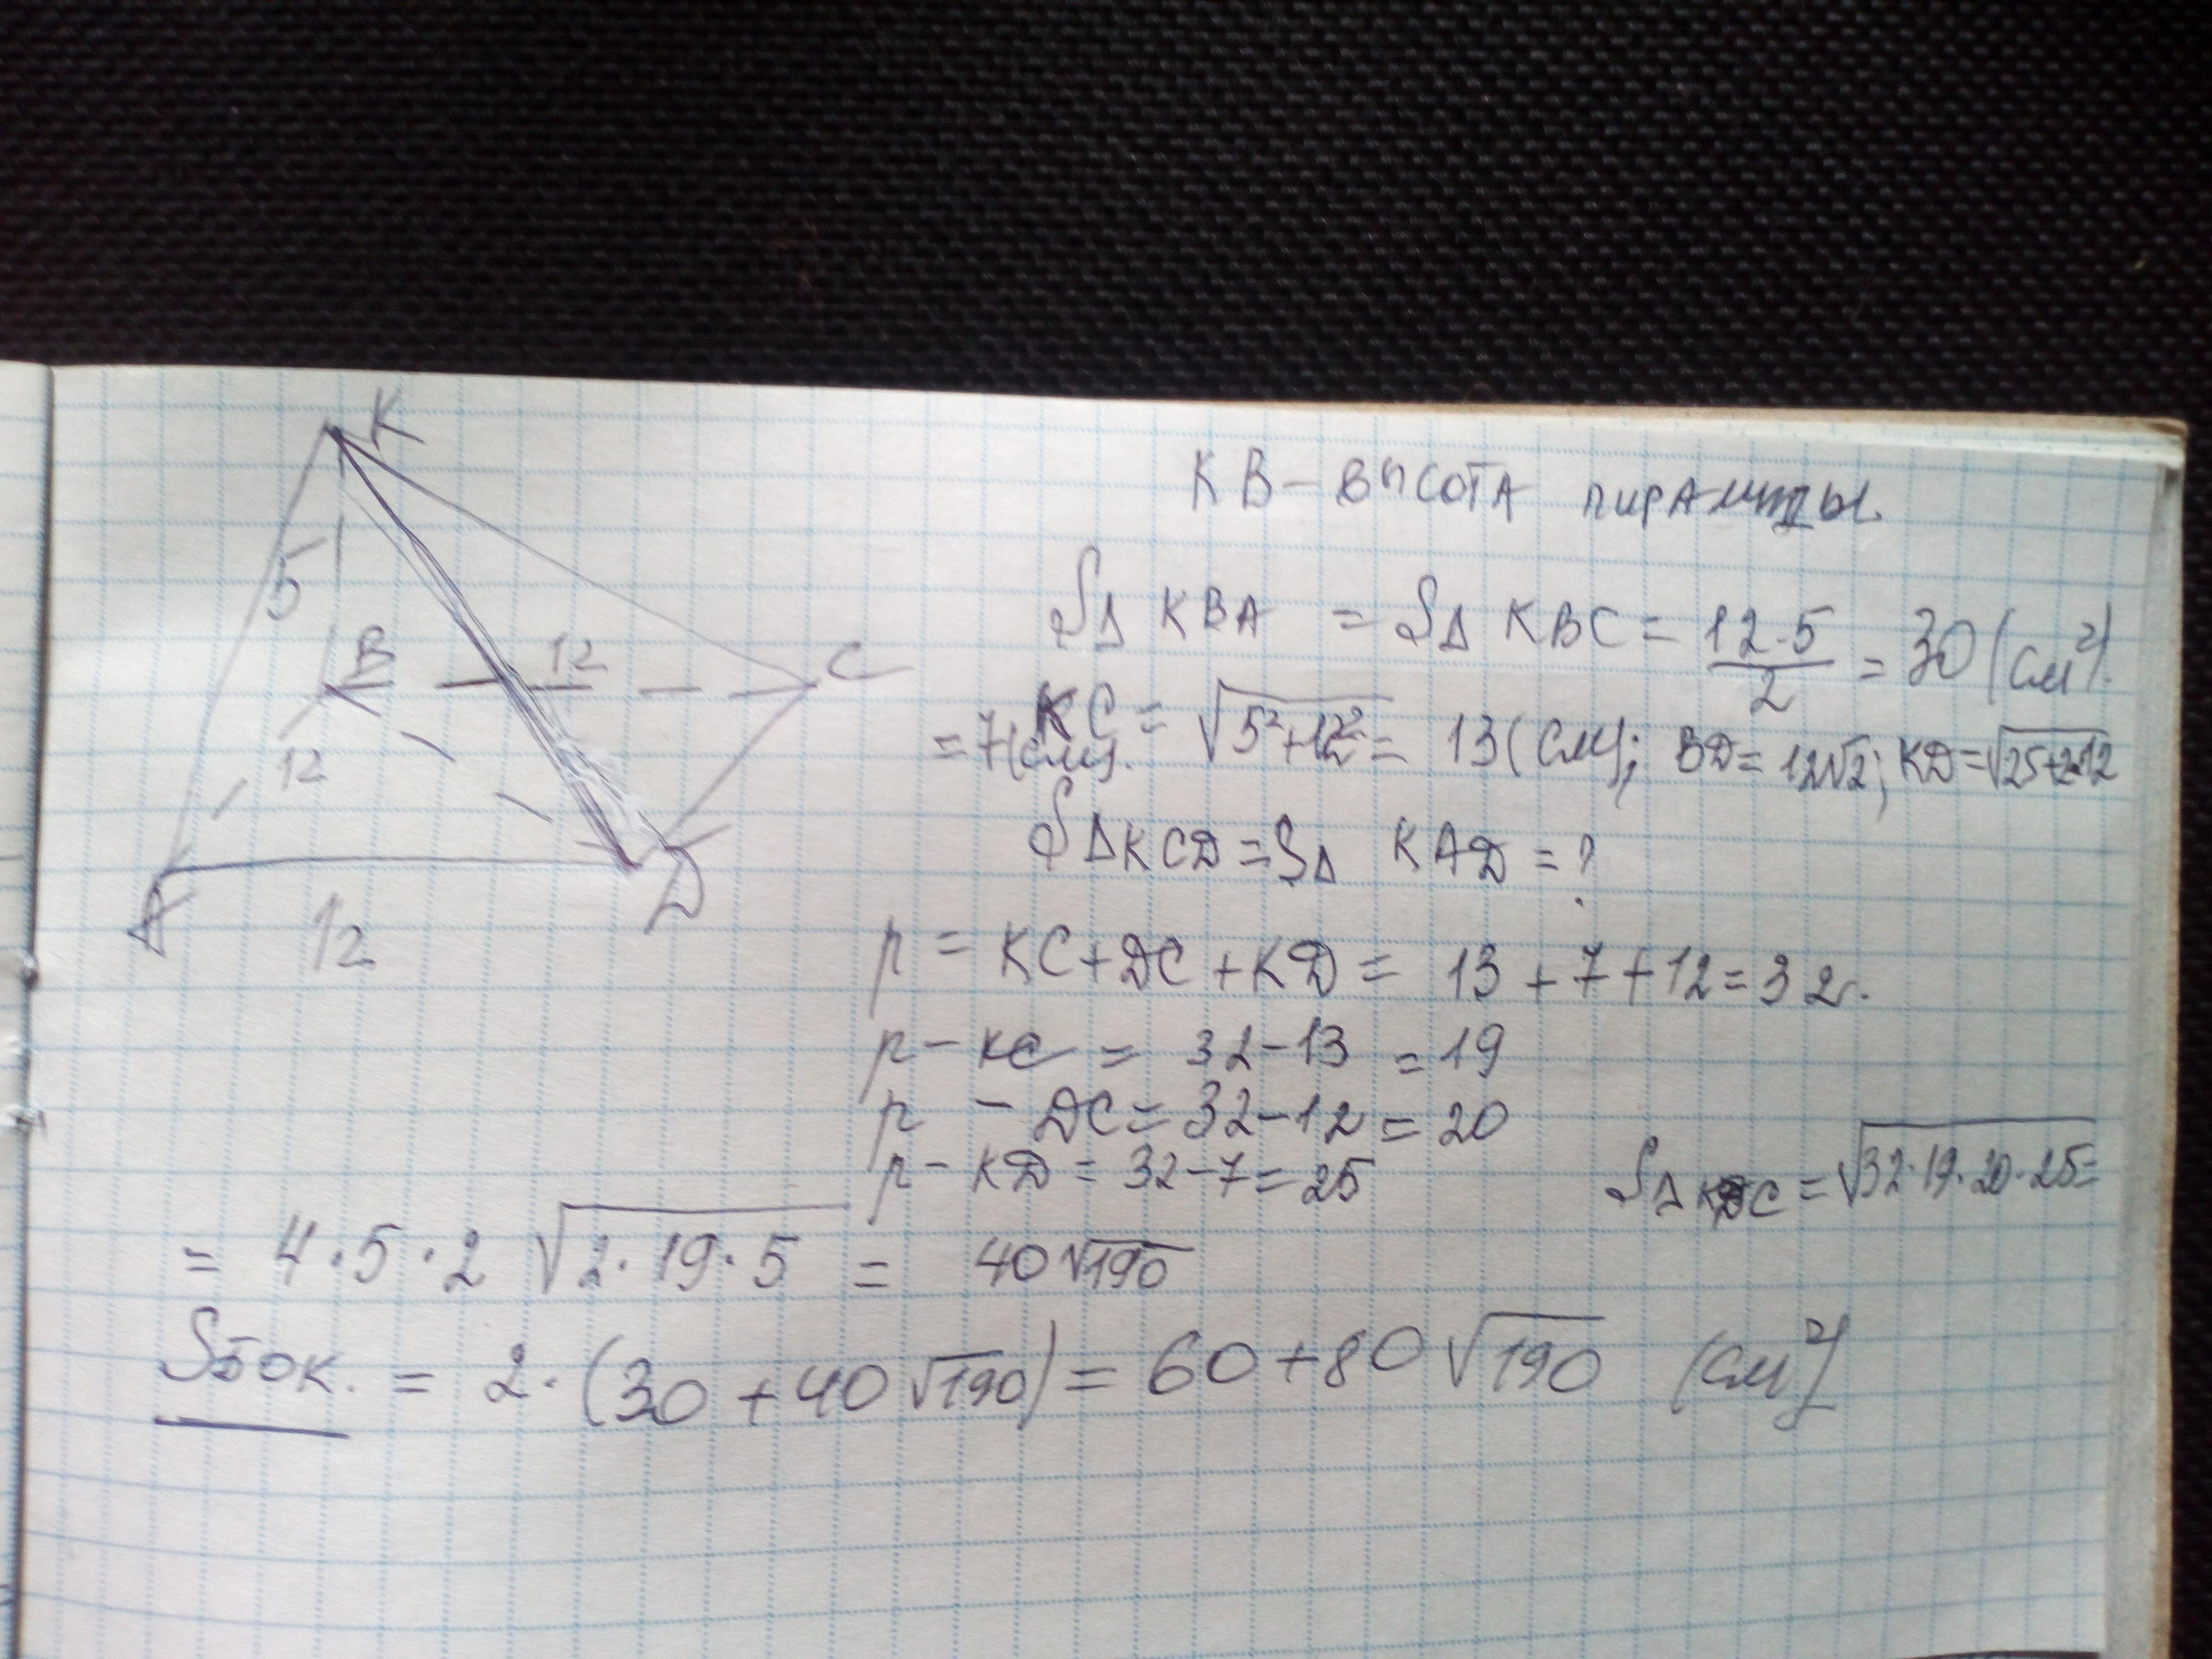 K
5
B
12
C
12
A
12
D
KB – высота пирамиды.
S△ KBA = S△ KBC = 12·5/2 = 30 (см²).
KC = √5²+12² = 13 (см); BD = 12√2; KD = √25+2·12
= 7 (см).
S△KCD = S△ KAD = ?
p = KC + DC + KD = 13 + 7 + 12 = 32.
p – KC = 32 – 13 = 19
p – DC = 32 – 12 = 20
p – KD = 32 – 7 = 25
S△KDC = √32·19·20·25 =
= 4·5·2 √2·19·5 = 40√190
Sбок. = 2·(30 + 40√190) = 60 + 80√190 (см²)